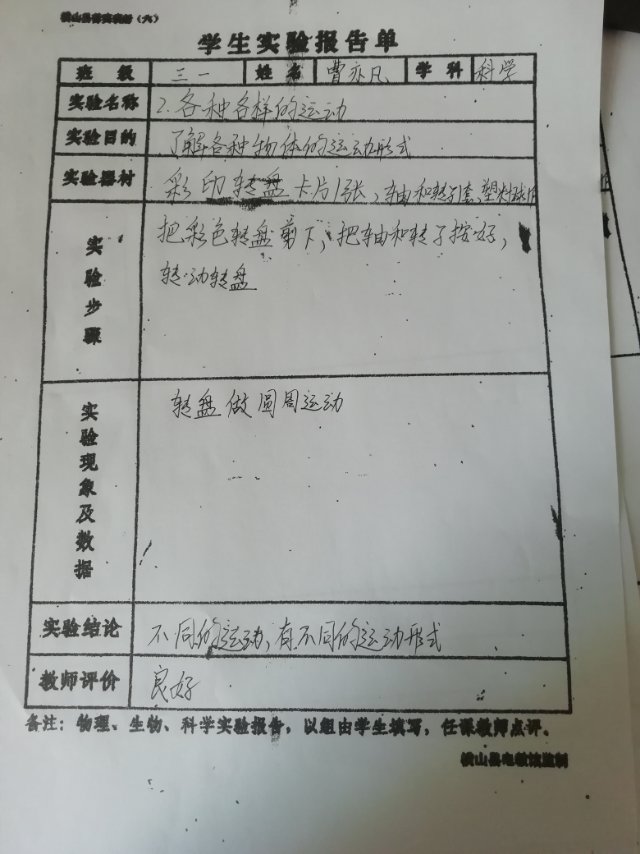 学生实验报告单
班 级 三一 姓 名 曹亦凡 学 科 科学
实验名称 2.各种各样的运动
实验目的 了解各种物体的运动形式
实验器材 彩印转盘卡片1张,轴和转子1套,塑
实验步骤 把彩色转盘剪下,把轴和转子按好,
转动转盘
实验现象及数据 转盘做圆周运动
实验结论 不同的运动,有不同的运动形式
教师评价 良好
备注:物理、生物、科学实验报告,以组由学生填写,任课教师点评。
横山县电教馆监制